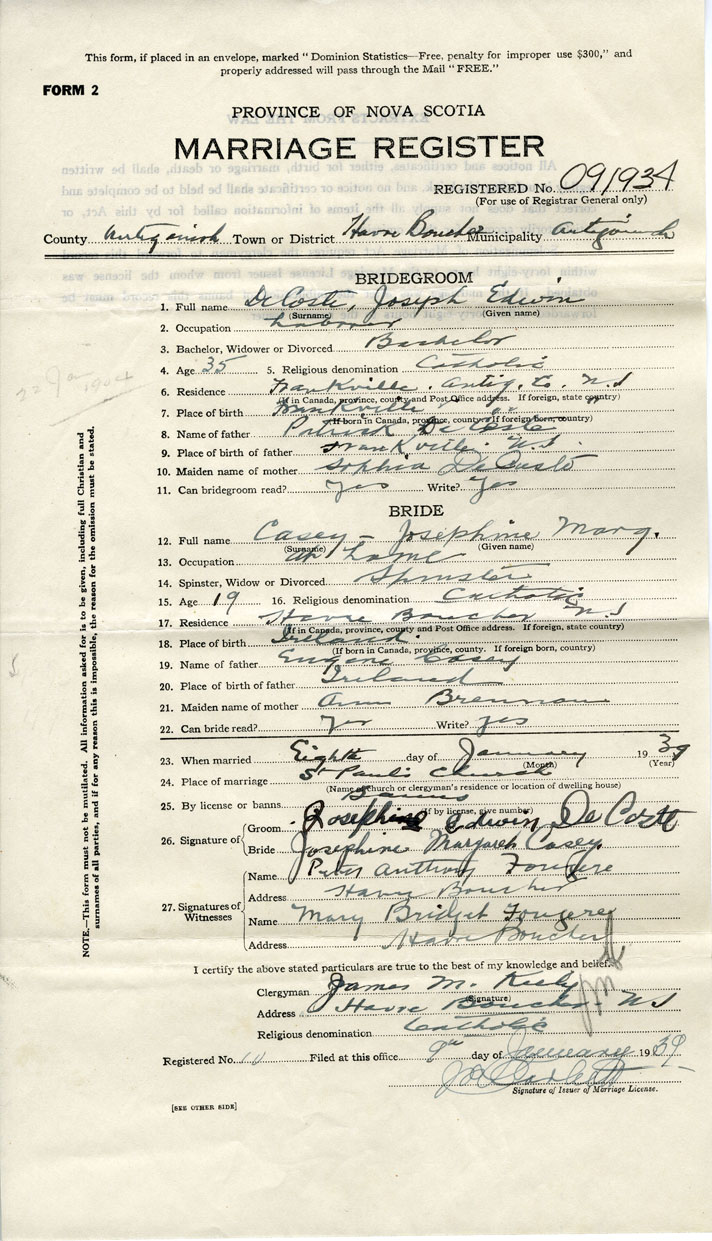 This form, if placed in an envelope, marked "Dominion Statistics—Free, penalty for improper use $300," and
properly addressed will pass through the Mail "FREE."
FORM 2
PROVINCE OF NOVA SCOTIA
MARRIAGE REGISTER
REGISTERED No. 091934
(For use of Registrar General only)
County Antigonish Town or District Havre Boucher Municipality Antigonish
BRIDEGROOM
1. Full name DeCoste, Joseph Edwin
(Surname) (Given name)
2. Occupation Laborer
3. Bachelor, Widower or Divorced Bachelor
4. Age 35 5. Religious denomination Catholic
6. Residence Frankville. Antig. Co. N.S
(If in Canada, province, county and Post Office address. If foreign, state country)
7. Place of birth Frankville " "
(If born in Canada, province, county. If foreign born, country)
8. Name of father Patrick DeCoste
9. Place of birth of father Frankville. N.S.
10. Maiden name of mother Sophia DeCoste
11. Can bridegroom read? Yes Write? Yes
BRIDE
12. Full name Casey - Josephine Marg.
(Surname) (Given name)
13. Occupation at home
14. Spinster, Widow or Divorced Spinster
15. Age 19 16. Religious denomination Catholic
17. Residence Havre Boucher N.S
(If in Canada, province, county and Post Office address. If foreign, state country)
18. Place of birth Ireland.
(If born in Canada, province, county. If foreign born, country)
19. Name of father Eugene Casey
20. Place of birth of father Ireland
21. Maiden name of mother Ann Brennan
22. Can bride read? Yes Write? Yes
23. When married Eighth day of January 1939
(Month) (Year)
24. Place of marriage St Paul's Church
(Name of church or clergyman's residence or location of dwelling house)
25. By license or banns Banns
(If by license, give number)
26. Signature of
Groom Josephine Edwin DeCoste
Bride Josephine Margaret Casey
27. Signatures of Witnesses
Name Peter Anthony Fougere
Address Havre Boucher
Name Mary Bridget Fougere
Address Havre Boucher
I certify the above stated particulars are true to the best of my knowledge and belief.
Clergyman James M. Kiely
(Signature)
Address Havre Boucher - N.S
Religious denomination Catholic
Registered No. Filed at this office 9th day of January 1939
Signature of Issuer of Marriage License.
[SEE OTHER SIDE]
NOTE.—This form must not be mutilated. All information asked for is to be given, including full Christian and
surnames of all parties, and if for any reason this is impossible, the reason for the omission must be stated.
22 Jan 1904